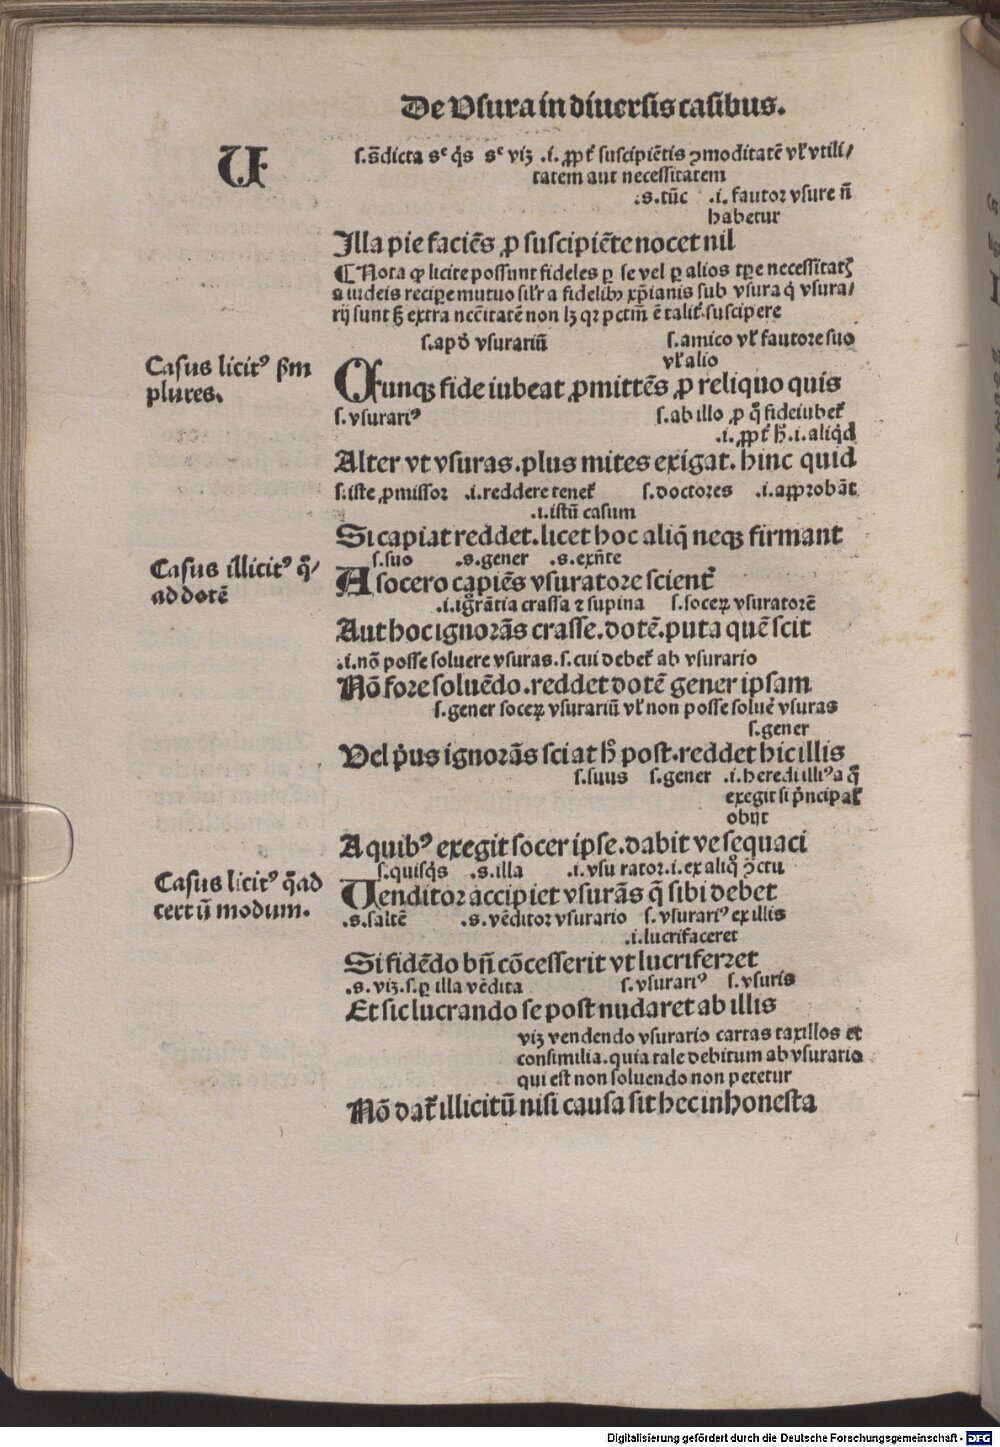 De Vsura in diuersis casibus.
U
.s. sr̄dicta sᶜ q̇s sᶜ viꝫ .i. ꝓpt̄ suscipiētis ꝯmoditatē vl̓ vtili/
tatem aut necessitatem
.s. tūc .i. fautor vsure n̄
habetur
Illa pie faciēs ꝓ suscipiēte nocet nil
¶ Nota ꝙ licite possunt fideles ꝑ se vel ꝑ alios tp̄e necessitatꝭ
a iudeis recipe mutuo silr̓ a fidelibꝰ xp̄ianis sub vsura q̇ vsura/
rij sunt sꝫ extra nc̄citatē non lꝫ qꝛ pctm̄ ē talit̓ suscipere
s. apd̓ vsurariū s. amico vl̓ fautore suo
vl̓ alio
Casus licitꝰ ßm
plures.
Cunqꝫ fide iubeat ꝓmittēs ꝓ reliquo quis
s. vsurariꝰ s. ab illo ꝓ q̄ fideiubet̓
.i. ꝓpt̓ h̄ .i. aliq̇d
Alter vt vsuras. plus mites exigat. hinc quid
s. iste ꝓmissor .i. reddere tenet̓ s. doctores .i. approbāt
.i. istū casum
Si capiat reddet. licet hoc aliq̄ neqꝫ firmant
Casus illicitꝰ q̄/
ad dotē
s. suo .s. gener .s. exn̄te
A socero capiēs vsuratore scient̓
.i. igr̄ātia crassa ⁊ supina s. soceꝝ vsuratorē
Aut hoc ignorās crasse. dotē. puta quē scit
.i. nō posse soluere vsuras. s. cui debet̓ ab vsurario
Nō fore soluēdo. reddet dotē gener ipsam
s. gener soceꝝ vsurariū vl̓ non posse soluē vsuras
s. gener
Vel p̓us ignorās sciat h̄ post. reddet hic illis
s. suus s. gener .i. heredi illiꝰ a q̄
exegit si p̓ncipal̓
obijt
A quibꝰ exegit socer ipse. dabit ve sequaci
Casus licitꝰ q̄ad
tertiū modum.
s. quisq̇s .s. illa .i. vsu rator .i. ex aliq̄ ꝯctu
Uenditor accipiet vsurās q̄ sibi debet
.s. saltē .s. vēditor vsurario s. vsurariꝰ ex illis
.i. lucrifaceret
Si fidēdo bn̄ cōcesserit vt lucriferret
.s. viꝫ. s. ꝑ illa vēdita s. vsurariꝰ s. vsuris
Et sic lucrando se post nudaret ab illis
viꝫ vendendo vsurario cartas taxillos et
consimilia. quia tale debitum ab vsurario
qui est non soluendo non petetur
Nō dat̓ illicitū nisi causa sit hec inhonesta
Digitalisierung gefördert durch die Deutsche Forschungsgemeinschaft - DFG